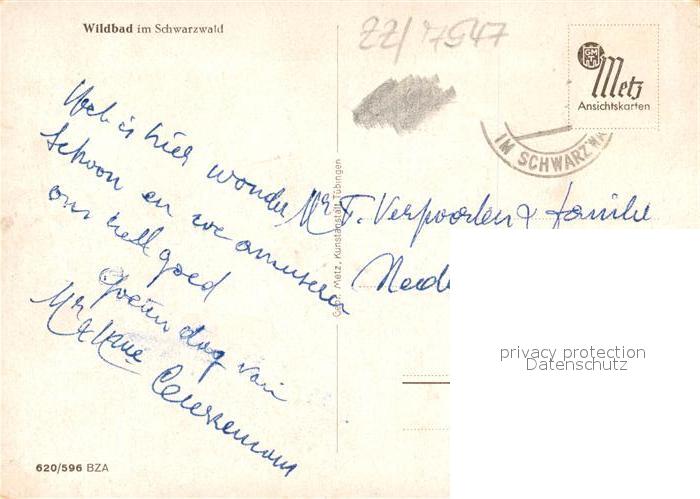 Wildbad im Schwarzwald
22/7547
GM
Metz
Ansichtskarten
IM SCHWARZWA
is hier wonder
schoon en we amuseren
ons heel goed
Goeden dag van
Mr & Mme
Mr F. Verpoorten & familie
Gebr. Metz, Kunstanstalt, Tübingen
620/596 BZA
privacy protection
Datenschutz